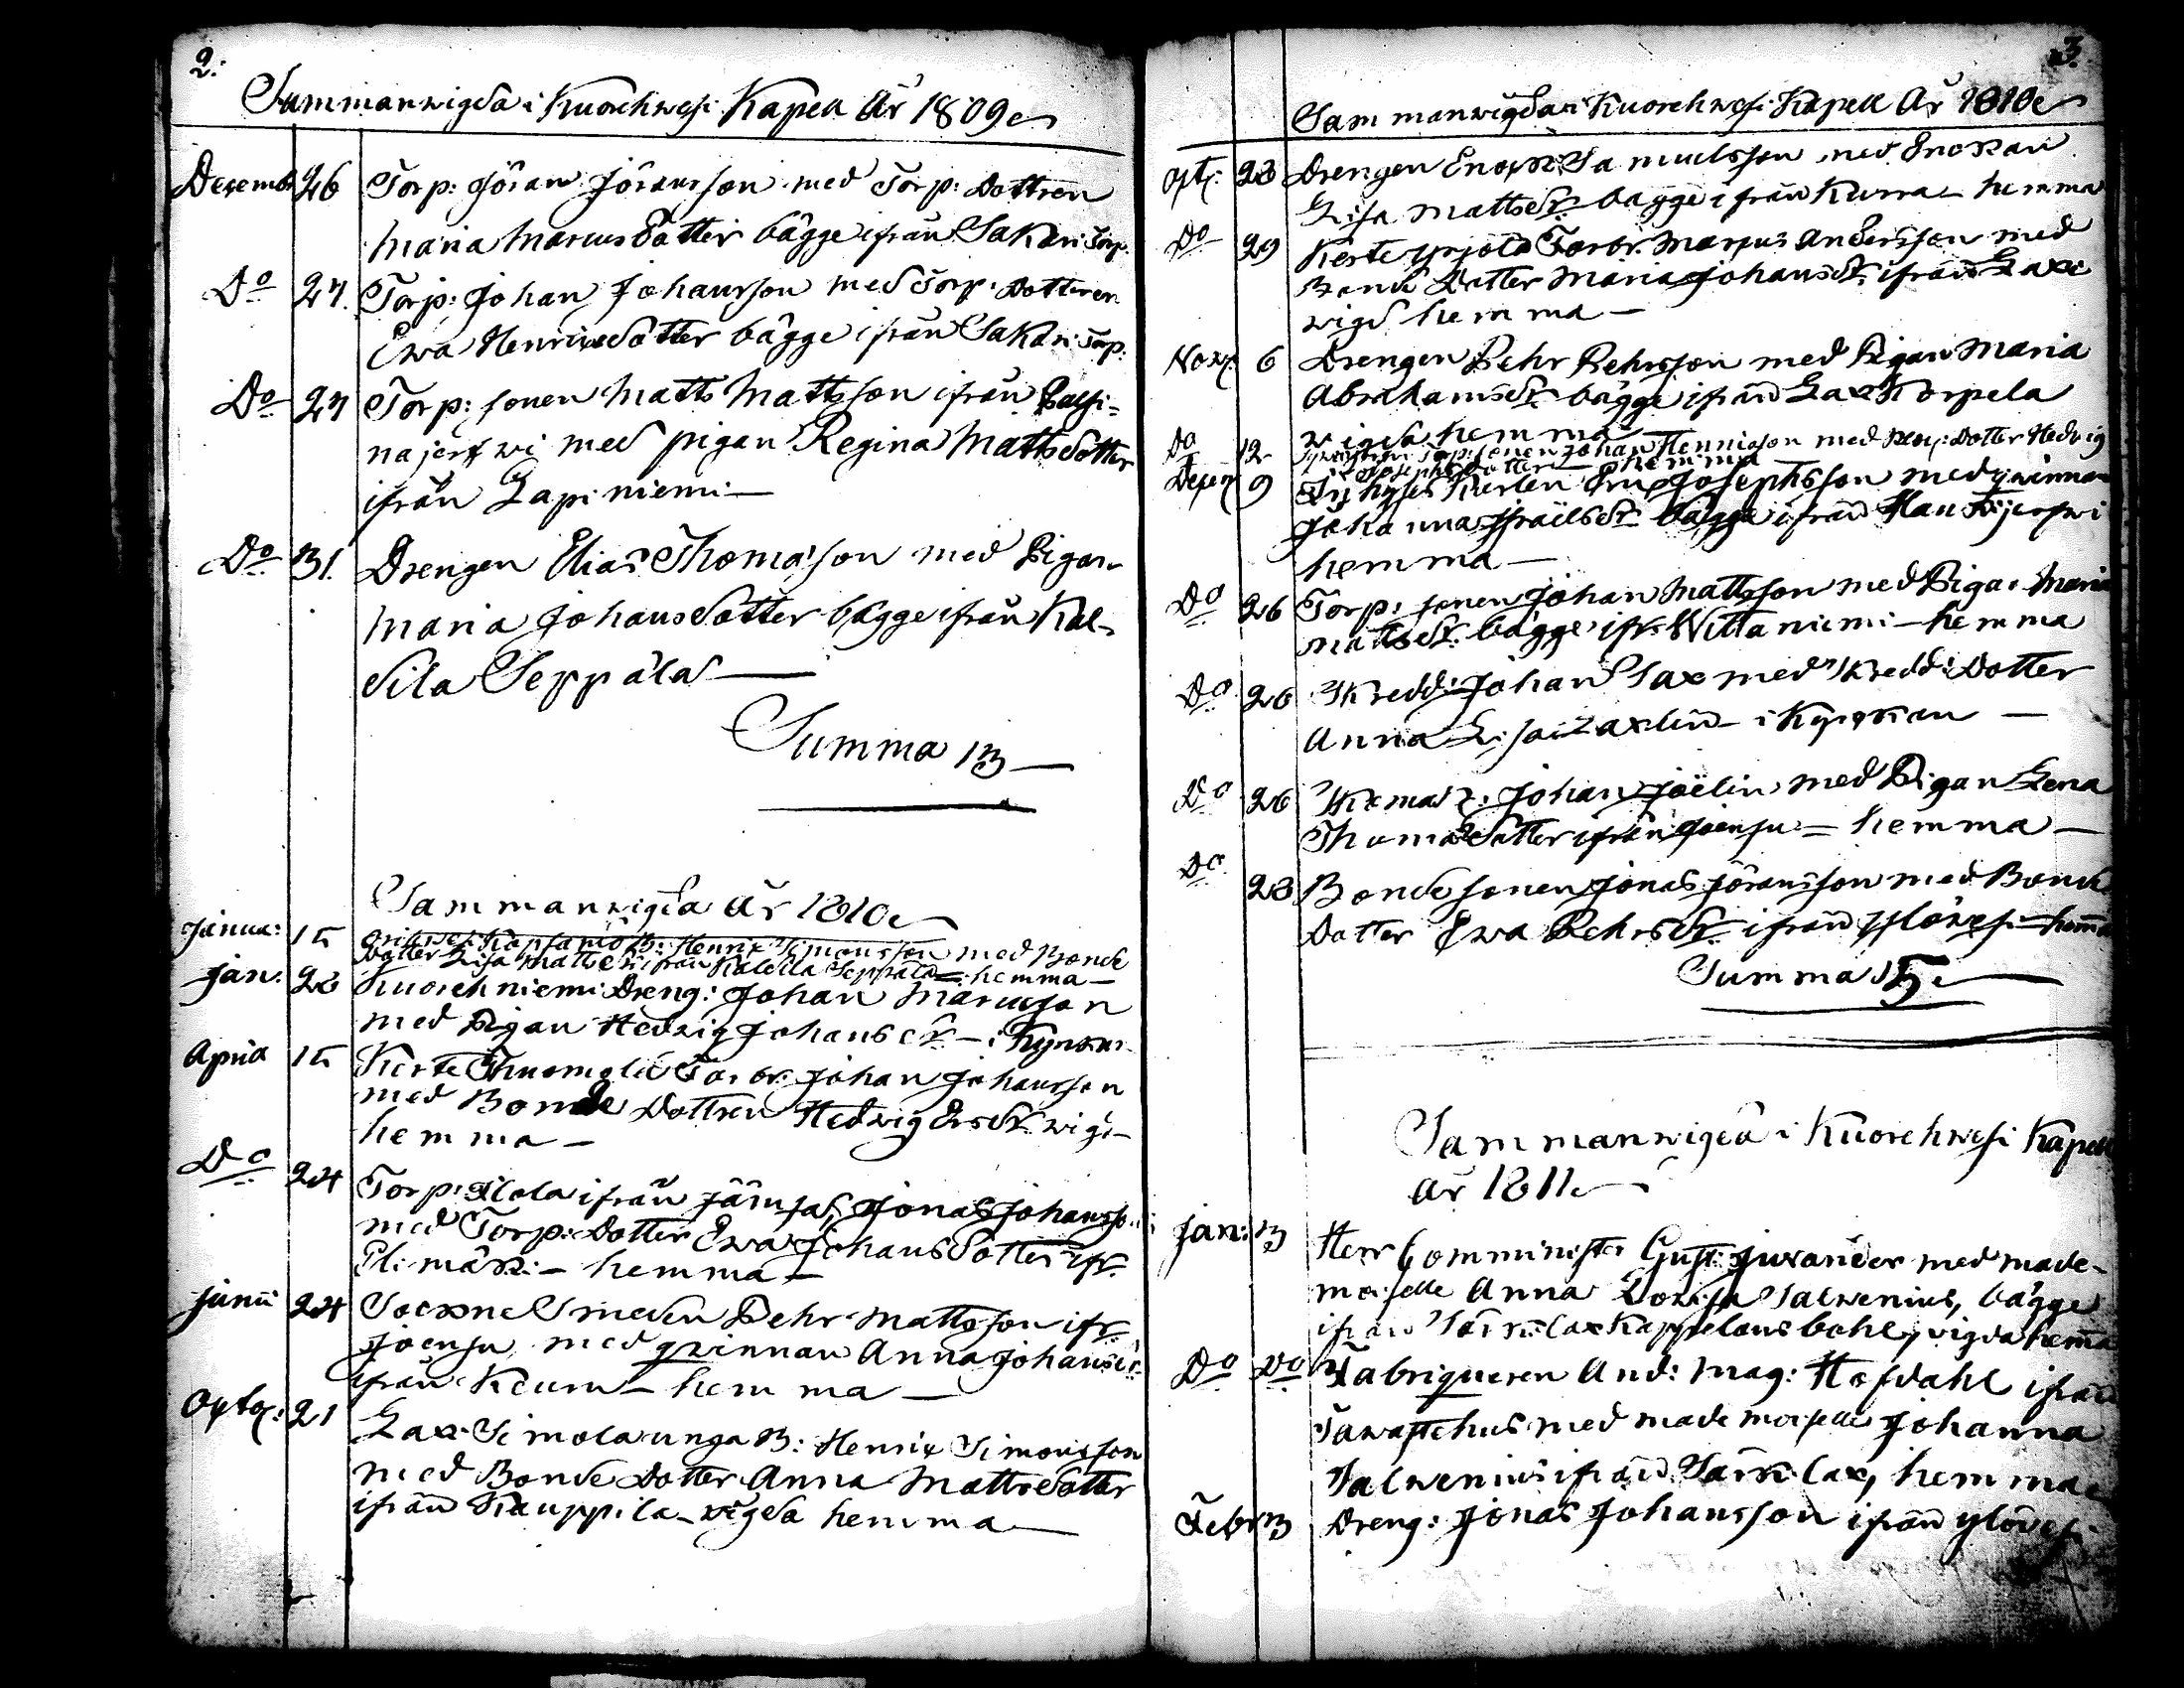 2.
Sammanwigda i Kuorehwesi Kapell År 1809
Decemb 26 Torp: Jöran Jöransson med Torp: Dottren
Maria Marcus Dotter bägge ifrån Sakari Torp.
Do 27. Torp: Johan Johansson med Torp: Dottren
Ewa Henricsdotter bägge ifrån Sakari Torp:
Do 27 Torp: sonen Matts Mattsson ifrån
najerfwi med pigan Regina Matts dotter
ifrån Lapiniemi
Do 31. Drengen Elias Thomasson med Pigan
Maria Johansdotter bägge ifrån Kal-
Seppälä
Summa 13
Sammanwigda År 1810
Janua: 15 B: Henric Simonsson med Bonde
Dotter Lisa Matts dr ifrån Kalella Seppälä hemma
Jan: 28 Kuorehniemi Dreng: Johan Marcusson
med Pigan Hedwig Johans dr i Kyrckan
Aprill 15 Kerte Thuomola Torbr: Johan Johansson
med Bonde Dottren Hedwig Ersdr. wigd
hemma
Do 24 Torp: Alola ifrån Jämsä, Jonas Johansson
med Torp: Dotter Ewa Johans Dotter ifr.
hemma
Junii 24 Sockne Smeden Pehr Mattsson ifr
Joensu med qwinnan Anna Johansdr.
ifrån Keuru hemma
Octob: 21 Lax Simola unga B: Henric Simonsson
med Bonde Dotter Anna Mattsdotter
ifrån Kauppila wigda hemma
3.
Sammanwigda i Kuorehwesi Kapell År 1810
Oct: 28 Drengen Enock Samuelsson med Enckan
Lisa Mattsdr. bägge ifrån Kurra hemma
Do 29 Kerte Yrjölä Torbr. Marcus Andersson med
Bonde Dotter Maria Johansdr. ifrån Laxi
wigd hemma
Nov 6 Drengen Pehr Pehrsson med Pigan Maria
Abrahamsdr. bägge ifrån Lax Korpela
wigda hemma
Do 12 Torp: sonen Johan Hennicson med Dotter Hedvig
Josephs dotter hemma
Decem 9 Karlen Eric Josephsson med qwinnan
Johanna Israelsdr. bägge ifrån Haukijerfwi
hemma
Do 26 Torp: sonen Johan Mattsson med Pigan Maria
Mattsdr. bägge ifr. Wittaniemi hemma
Do 26 Skredd: Johan Sax med Skredd: Dotter
Anna Lisa Laxlin i Kyrckan
Do 26 Johan Joëlin med Pigan Lena
Thomasdotter ifrån Joensu = hemma
Do 28 Bonde sonen Jonas Jöransson med Bonde
Dotter Ewa Pehrsdr. ifrån Ylöwesi hemma
Summa 15
Sammanwigda i Kuorehwesi Kapell
År 1811
Jan: 13 Herr Comminister Gust: Juvander med made-
moiselle Anna Lowisa Salwenius, bägge
ifrån Särkilax Kappelans bohl, vigda hemma
Do Do Fabriqueren And: Mag: Hofdahl ifrån
Tawastehus med mademoiselle Johanna
Salwenius ifrån Särkilax, hemma
Febr 13 Dreng: Jonas Johansson ifrån Ylöwesi